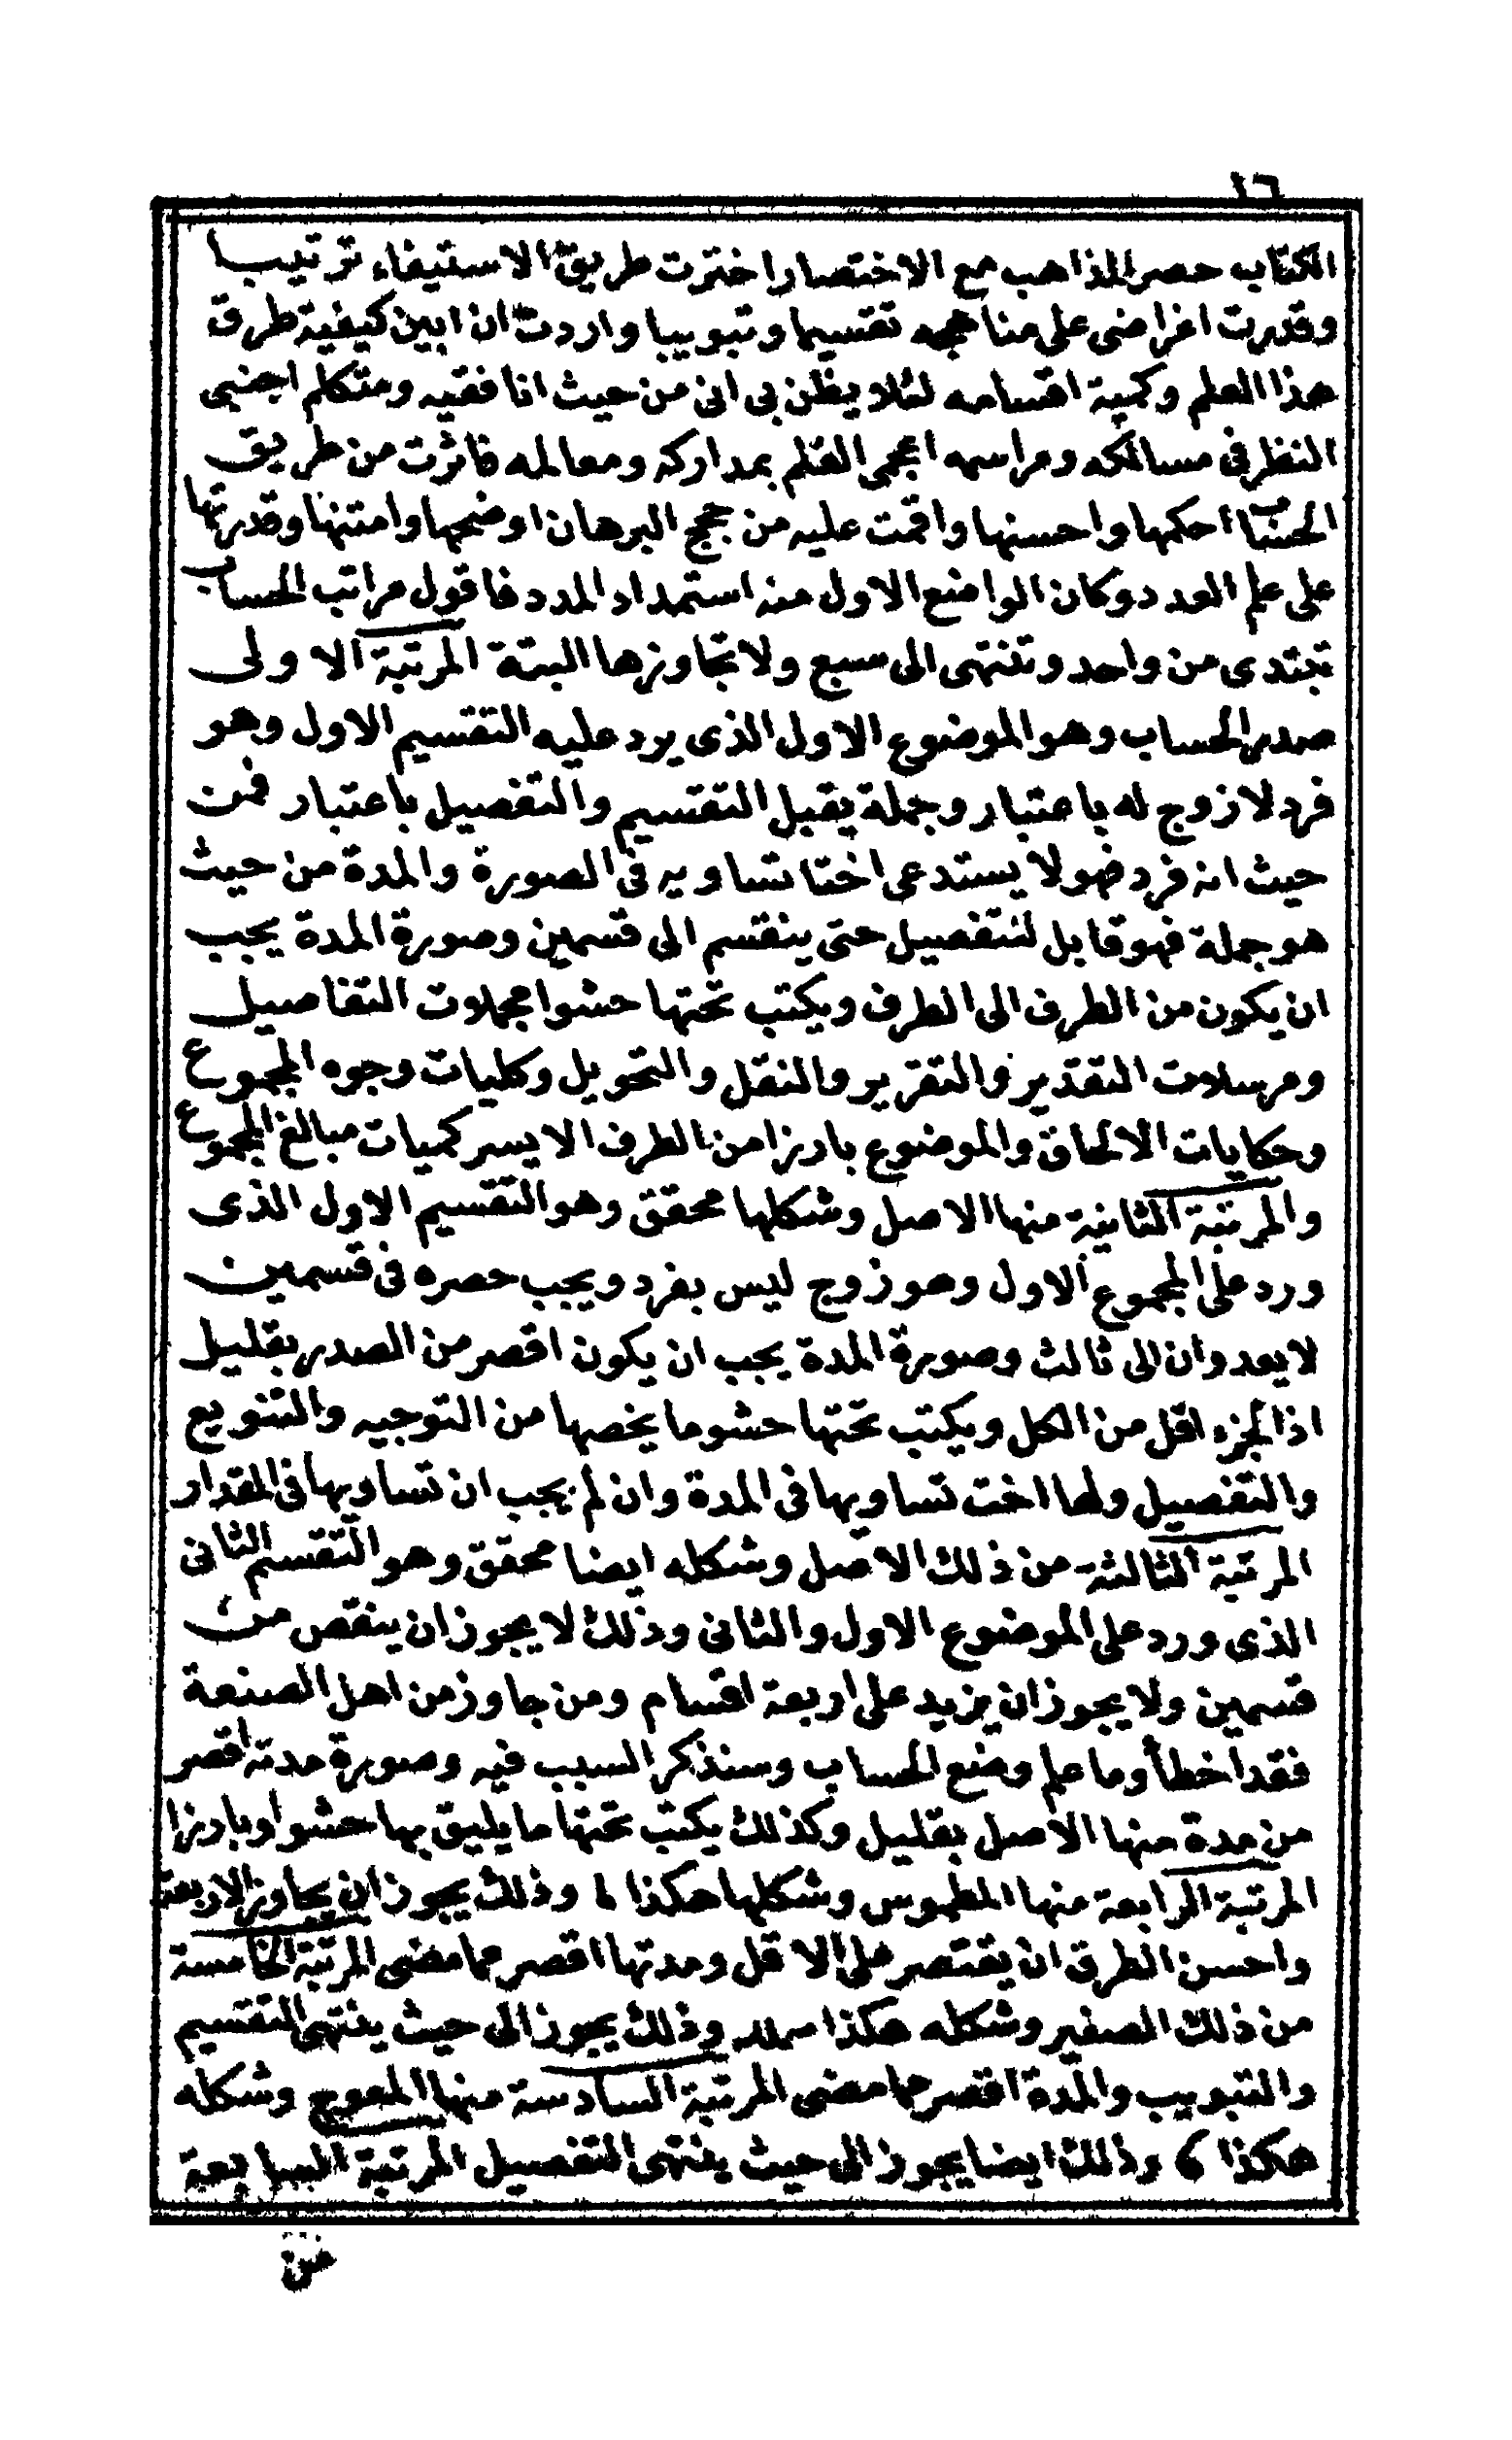 ١٦
الكتاب حصر المذاهب مع الاختصار اخترت طريق الاستيفاء ترتيبا
وقدرت اغراضى على مناهجه تقسيما وتبويبا واردت ان ابين كيفية طرق
هذا العلم وكمية اقسامه لئلا يظن بى انى من حيث انا فقيه ومتكلم اجنبى
النظر فى مسالكه ومراسمه اعجمى القلم بمداركه ومعالمه فاثرت من طريق
الحساب احكمها واحسنها واقمت عليه من حجج البرهان اوضحها وامتنها وقدرتها
على علم العدد وكان الواضع الاول منه استمداد المدد فاقول مراتب الحساب
تبتدى من واحد وتنتهى الى سبع ولا تجاوزها البتة المرتبة الاولى
صدر الحساب وهو الموضوع الاول الذى يرد عليه التقسيم الاول وهو
فرد لا زوج له باعتبار وجملة يقبل التقسيم والتفصيل باعتبار فمن
حيث انه فرد فهو لا يستدعى اختا تساويه فى الصورة والمدة من حيث
هو جملة فهو قابل للتفصيل حتى ينقسم الى قسمين وصورة المدة يجب
ان يكون من الطرف الى الطرف ويكتب تحتها حشوا مجملات التفاصيل
ومرسلات التقدير والتقرير والنقل والتحويل وكليات وجوه المجموع
وحكايات الالحاق والموضوع بادرزا من الطرف الايسر كميات مبالغ المجموع
والمرتبة الثانية منها الاصل وشكلها محقق وهو التقسيم الاول الذى
ورد على المجموع الاول وهو زوج ليس بفرد ويجب حصره فى قسمين
لا يعدوان الى ثالث وصورة المدة يجب ان يكون اقصر من الصدر بقليل
اذ الجزء اقل من الكل ويكتب تحتها حشو ما يخصها من التوجيه والتنويع
والتفصيل ولها اخت تساويها فى المدة وان لم يجب ان تساويها فى المقدار
المرتبة الثالثة من ذلك الاصل وشكله ايضا محقق وهو التقسيم الثانى
الذى ورد على الموضوع الاول والثانى وذلك لا يجوز ان ينقص من
قسمين ولا يجوز ان يزيد على اربعة اقسام ومن جاوز من اهل الصنعة
فقد اخطأ وما علم وضع الحساب وسنذكر السبب فيه وصورة مدته اقصر
من مدة منها الاصل بقليل وكذلك يكتب تحتها ما يليق بها حشوا وبادرزا
المرتبة الرابعة منها المطموس وشكلها هكذا ما وذلك يجوز ان يجاوز الاربعة
واحسن الطرق ان يقتصر على الاقل ومدتها اقصر مما مضى المرتبة الخامسة
من ذلك الصغير وشكله هكذا وذلك يجوز الى حيث ينتهى التقسيم
والتبويب والمدة اقصر مما مضى المرتبة السادسة منها المعوج وشكله
هكذا وذلك ايضا يجوز الى حيث ينتهى التفصيل المرتبة السابعة
من